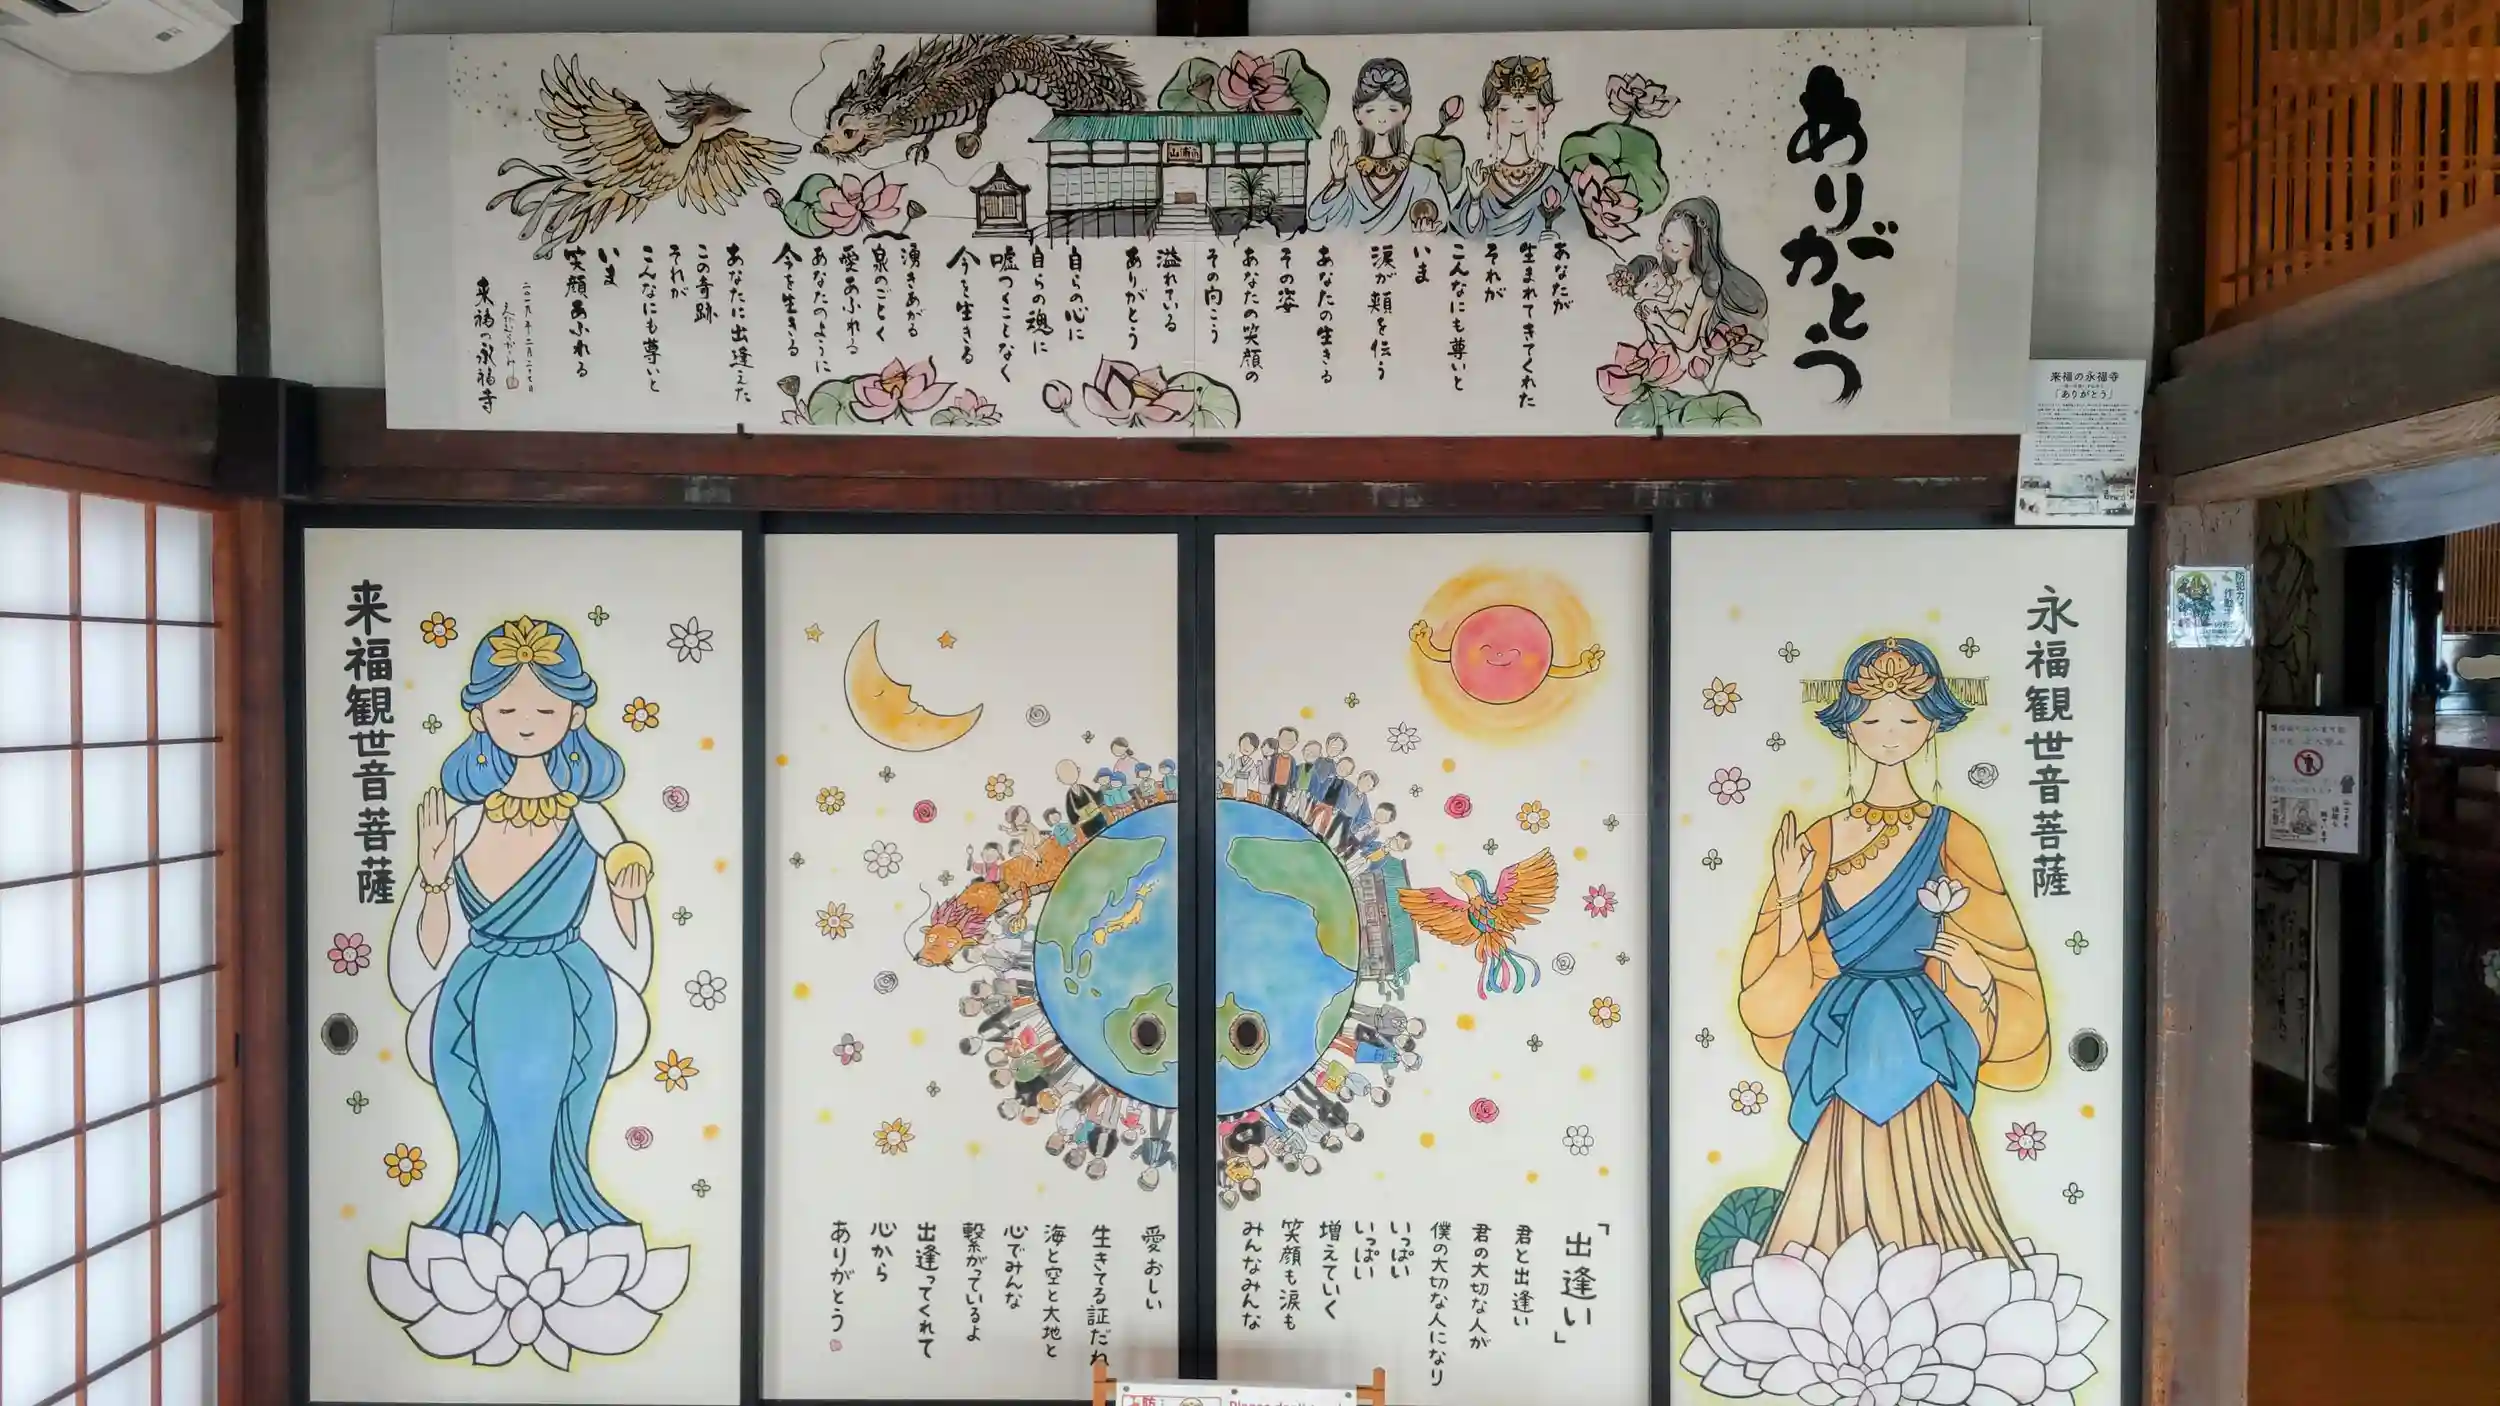 ありがとう
あなたが
生まれてきてくれた
それが
こんなにも尊いと
いま
涙が頬を伝う
あなたの生きる
その姿
あなたの笑顔の
その向こう
溢れている
ありがとう
自らの心に
自らの魂に
嘘つくことなく
今を生きる
湧きあがる
泉のごとく
愛あふれる
あなたのように
今を生きる
あなたに出逢えた
この奇跡
それが
こんなにも尊いと
いま
笑顔あふれる
来福の永福寺
来福の永福寺
「ありがとう」
来福観世音菩薩
「出逢い」
君と出逢い
君の大切な人が
僕の大切な人になり
いっぱい
いっぱい
増えていく
笑顔も涙も
みんなみんな
愛おしい
生きてる証だね
海と空と大地と
心でみんな
繋がっているよ
出逢ってくれて
心から
ありがとう
永福観世音菩薩